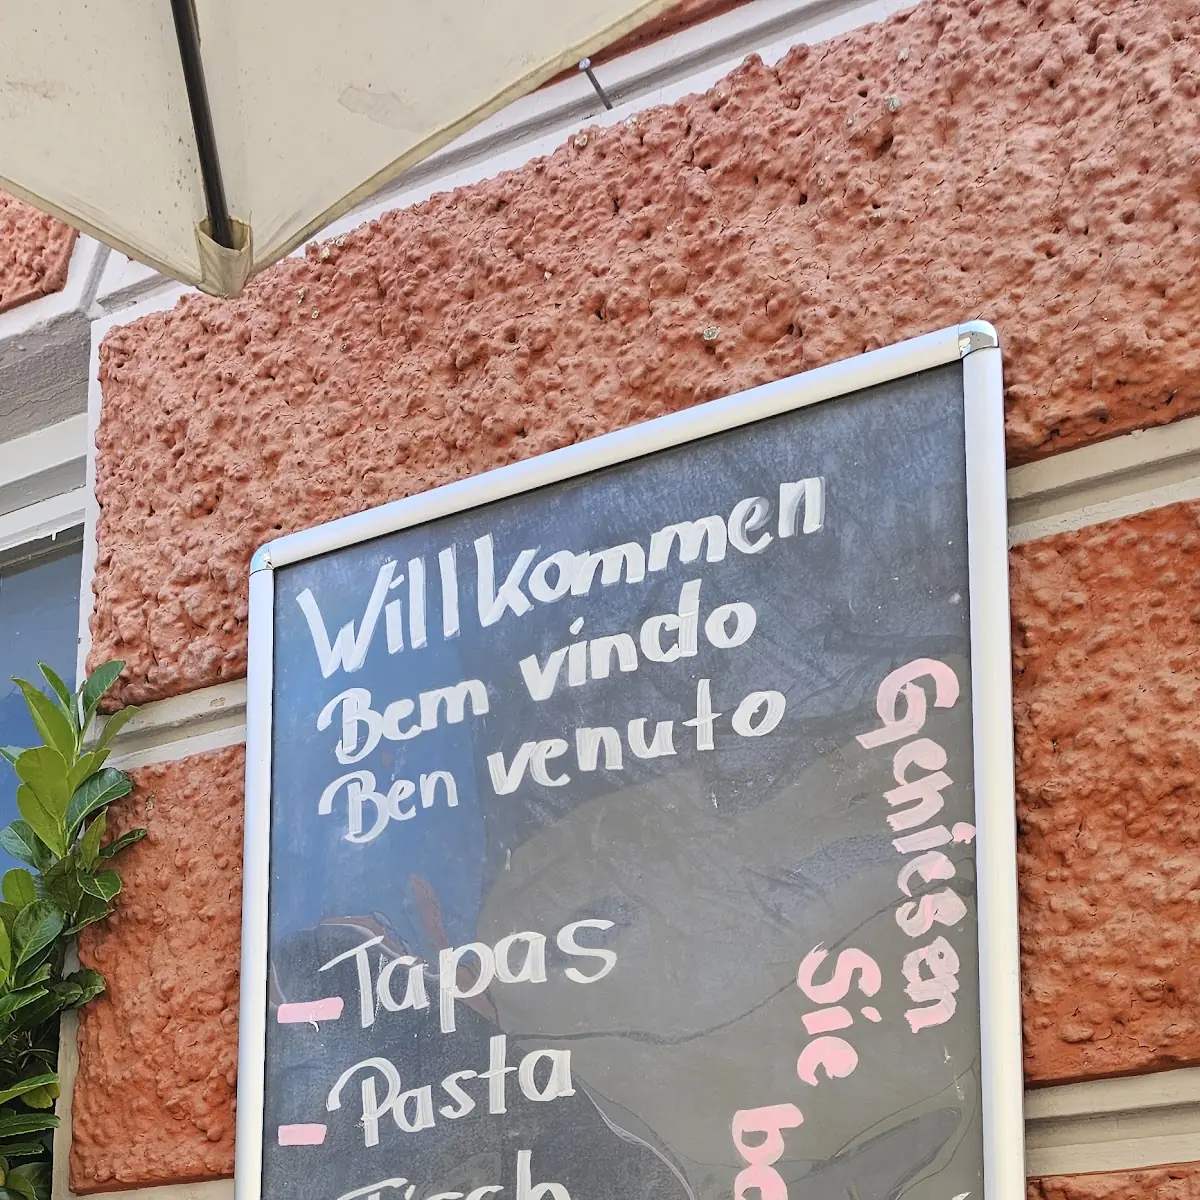 Willkommen
Bem vindo
Ben venuto
- Tapas
- Pasta
Geniesen
Sie